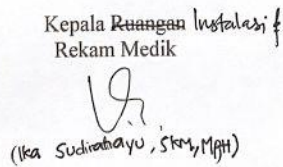 Kepala Ruangan Instalasi
Rekam Medik
(Ika Sudirahayu, SKM, MPH)